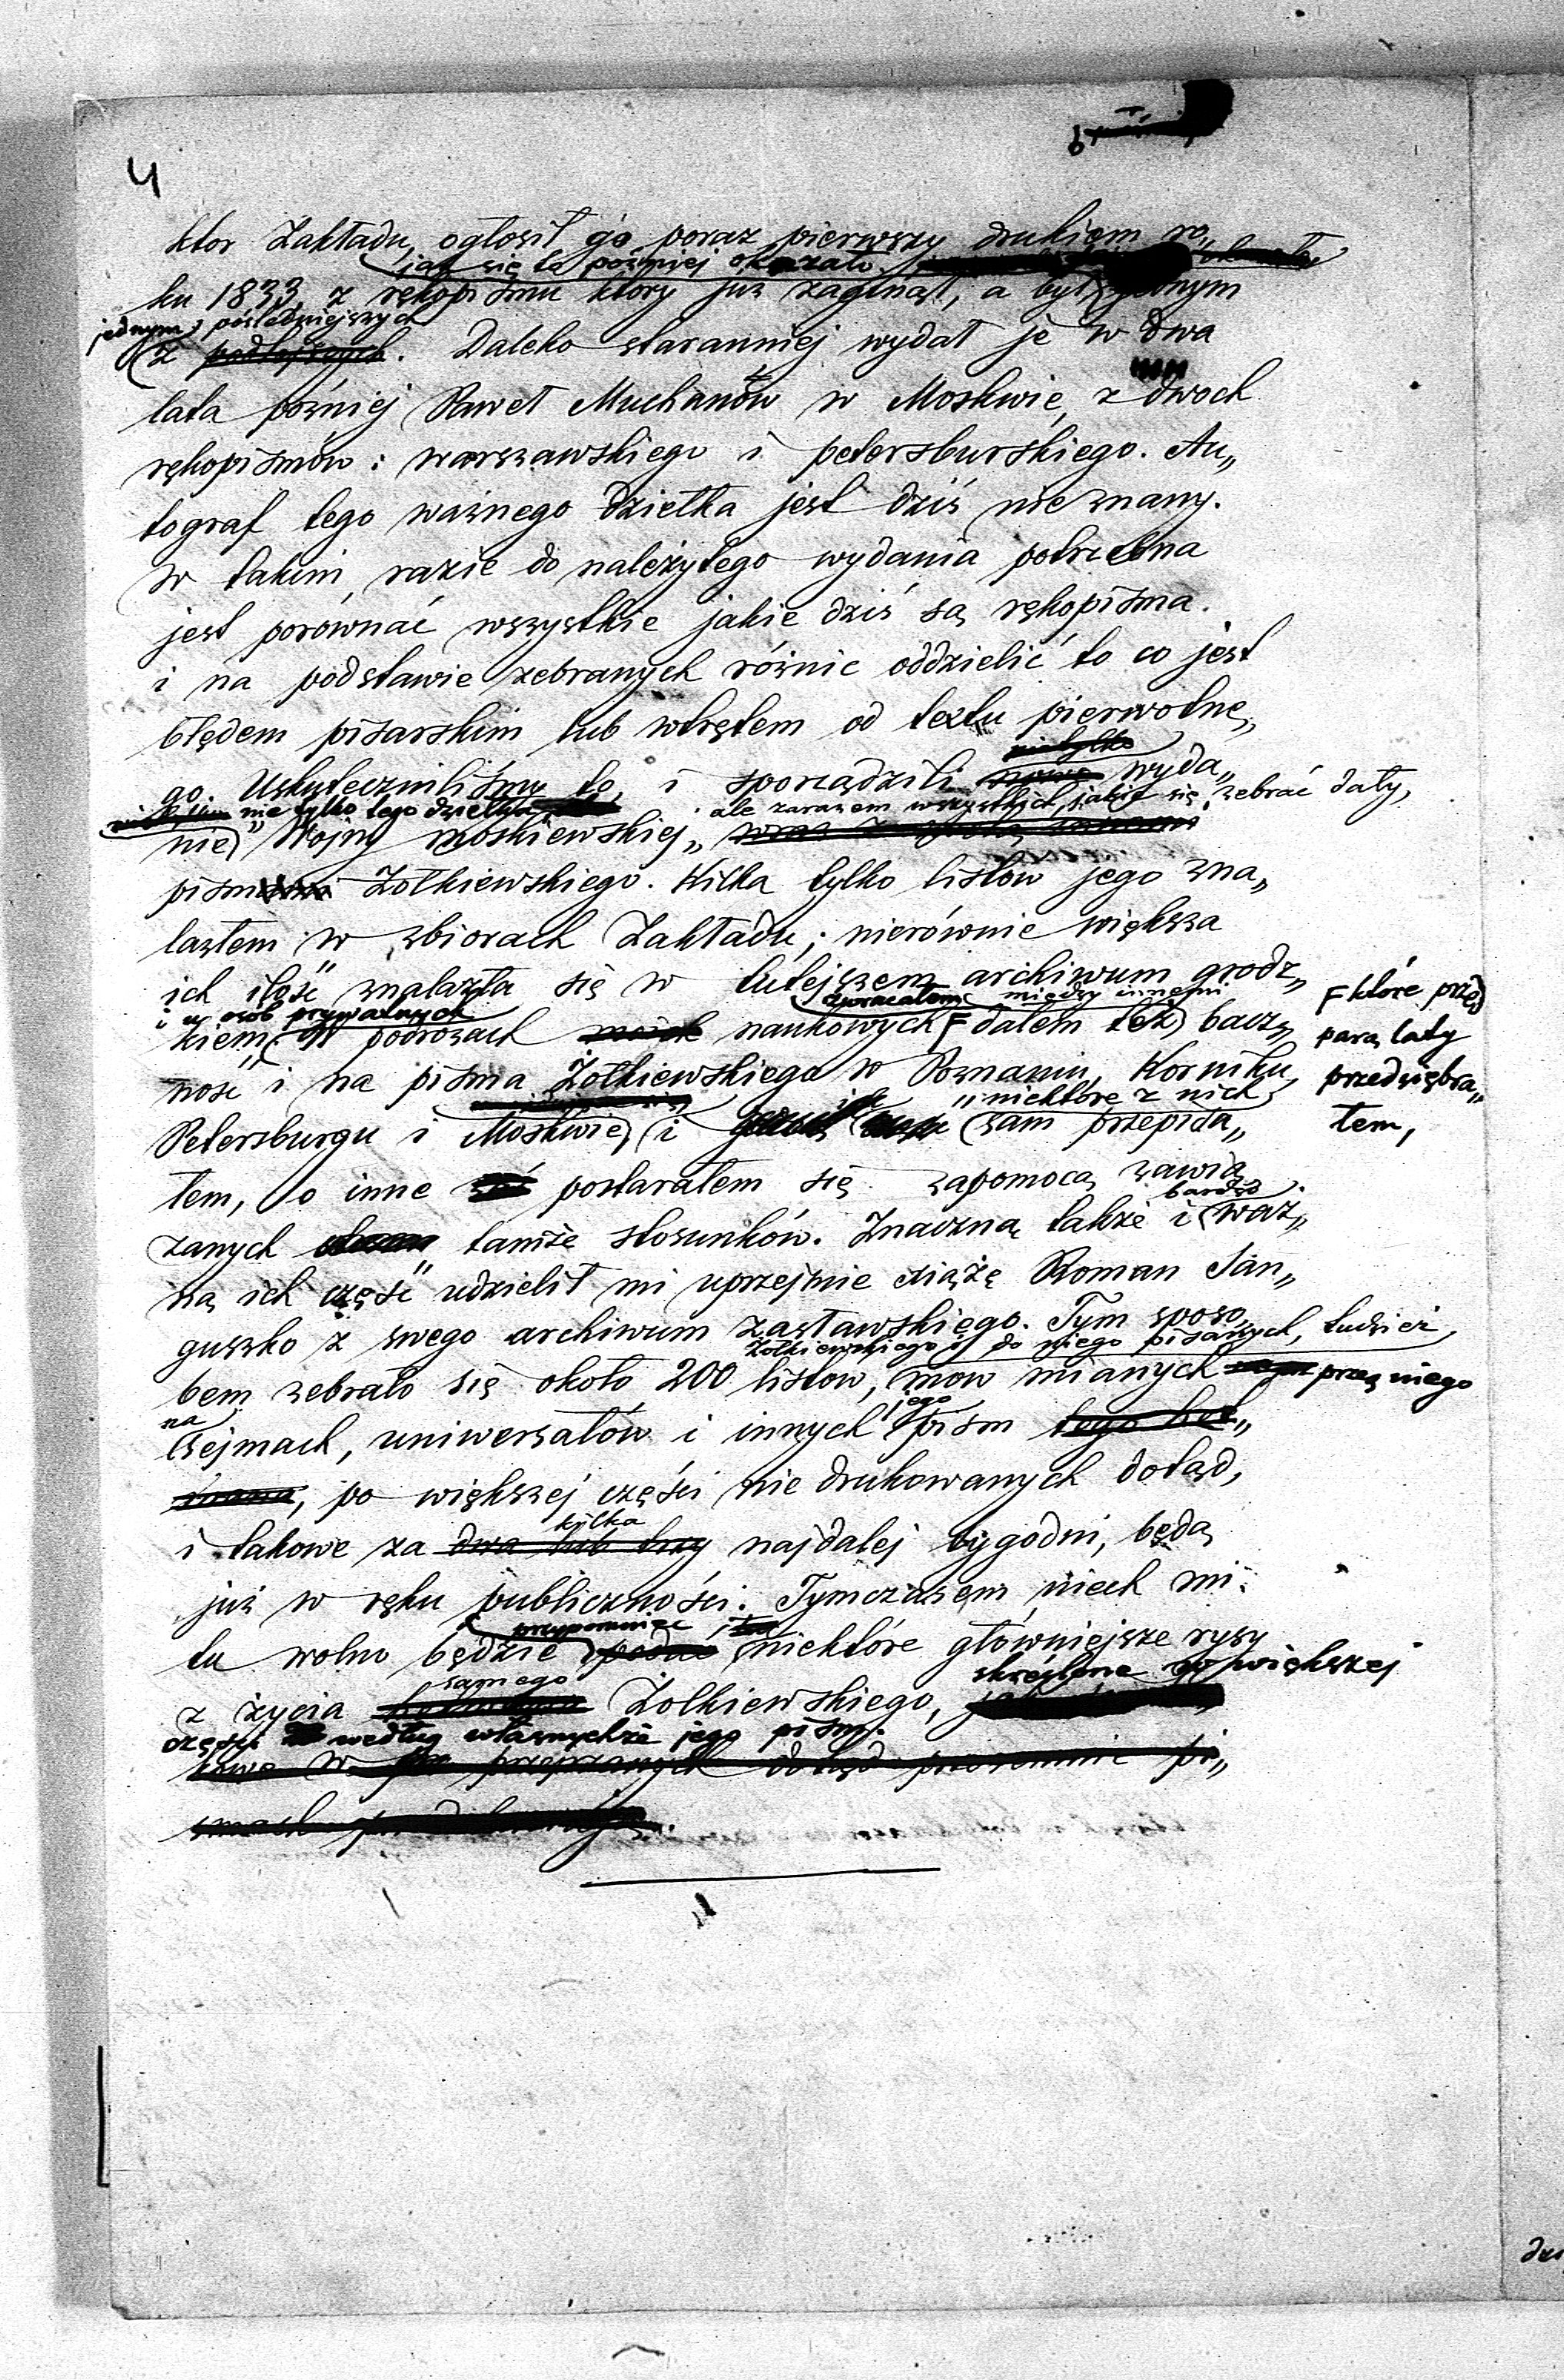 4
ktor Zakładu, ogłosił go poraz pierwszy drukiem ro„
jak się to poźniej okazało
ku 1833, z rękopismu który już zaginął, a był jednym
jednym z pośledniejszych
z podlejszych. Daleko staranniej wydał je w dwa
lata poźniej Paweł Muchanów w Moskwie, z dwoch
rękopismów: warszawskiego i petersburskiego. Au„
tograf tego ważnego dziełka jest dziś nie znany.
W takim razie do należytego wydania potrzebna
jest porównać wszystkie jakie dziś są rękopisma.
i na podstawie zebranych różnic oddzielić to co jest
błędem pisarskim lub wtrętem od textu pierwotne„
nietylko
go. Uskuteczniliśmy to, i sporządzili nowe wyda„
nie tylko tego dziełka ale zarazem wszystkich, jakie się zebrać dały,
nie „Wojny moskiewskiej„
pism Żółkiewskiego. Kilka tylko listów jego zna„
lazłem w zbiorach Zakładu; nierównie większa
ich ilość znalazła się w tutejszem archiwum grodz„
i u osób prywatnych zwracałem między innemi
kiem. W podrożach moich naukowych F dałem też bacz„
F które przed
parą laty
przedsiębra„
łem,
ność i na pisma Żółkiewskiego w Poznaniu, Korniku,
Petersburgu i Moskwie, i
niektóre z nich
sam przepisa„
łem, o inne zaś postarałem się zapomocą zawią„
bardzo
zanych tamże stosunków. Znaczną także i waż„
ną ich część udzielił mi uprzejmie xiążę Roman San„
guszko z swego archiwum zasławskiego. Tym sposo„
Żółkiewskiego i do niego pisanych, tudzież
bem zebrało się około 200 listów, mow mianych przez niego
na jego
sejmach, uniwersałów i innych pism tego het„
mana, po większej części nie drukowanych dotąd,
kilka
i takowe za dwa lub trzy najdalej tygodni, będą
już w ręku publiczności. Tymczasem niech mi
przypomnieć
tu wolno będzie podać niektóre główniejsze rysy
samego skreślone po większej
z życia Żółkiewskiego,
części według własnychże jego pism.